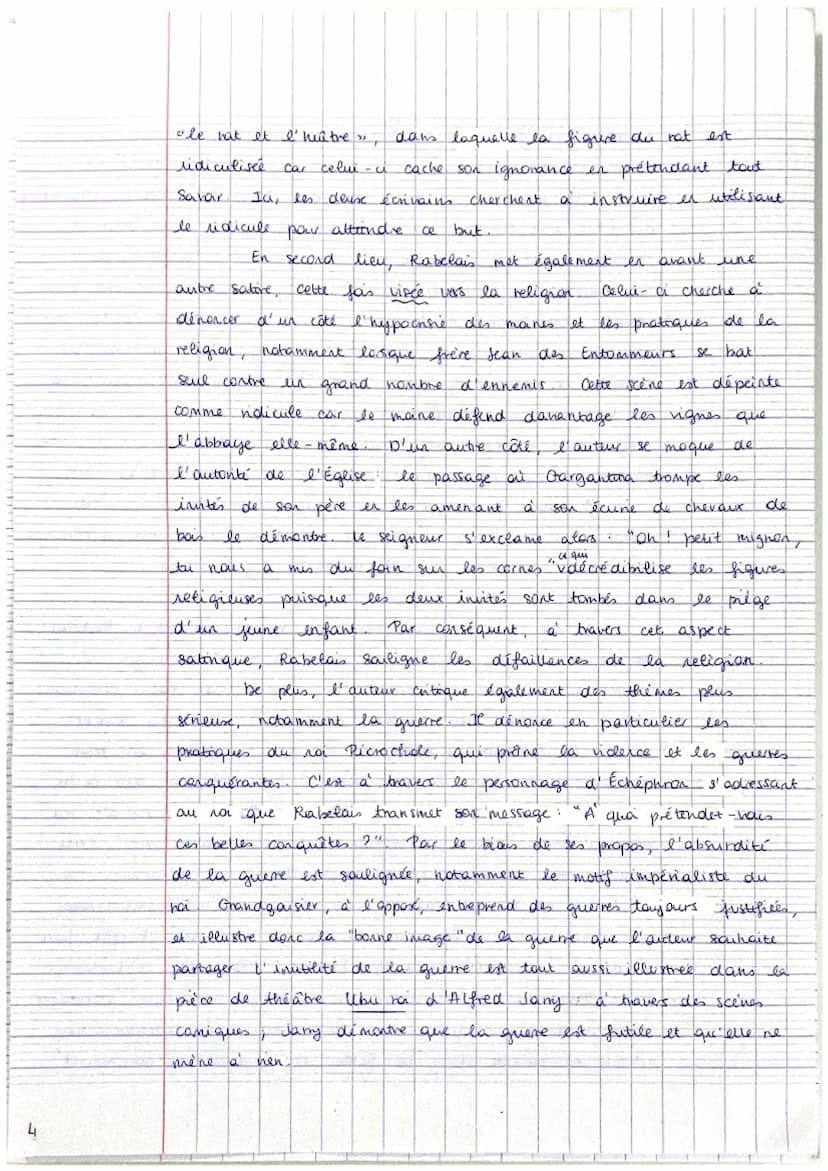 "le rat et l'huître", dans laquelle la figure du rat est
ridiculisée car celui-ci cache son ignorance en prétendant tout
savoir. Ici, les deux écrivains cherchent à instruire en utilisant
le ridicule pour atteindre ce but.
En second lieu, Rabelais met également en avant une
autre satire, cette fois visée vers la religion. Celui-ci cherche à
dénoncer d'un côté l'hypocrisie des moines et les pratiques de la
religion, notamment lorsque frère Jean des Entommeurs se bat
seul contre un grand nombre d'ennemis. Cette scène est dépeinte
comme ridicule car le moine défend davantage les vignes que
l'abbaye elle-même. D'un autre côté, l'auteur se moque de
l'autorité de l'Église : le passage où Gargantua trompe les
invités de son père en les amenant à son écurie de chevaux de
bois le démontre. Le seigneur s'exclame alors : "Oh ! petit mignon,
tu nous a mis du foin sur les cornes" ce qui décrédibilise les figures
religieuses puisque les deux invités sont tombés dans le piège
d'un jeune enfant. Par conséquent, à travers cet aspect
satirique, Rabelais souligne les défaillances de la religion.
De plus, l'auteur critique également des thèmes plus
sérieux, notamment la guerre. Il dénonce en particulier les
pratiques du roi Picrochole, qui prône la violence et les guerres
conquérantes. C'est à travers le personnage d'Échéphron s'adressant
au roi que Rabelais transmet son message : "À quoi prétendez-vous
ces belles conquêtes ?". Par le biais de ses propos, l'absurdité
de la guerre est soulignée, notamment le motif impérialiste du
roi. Grandgousier, à l'opposé, entreprend des guerres toujours justifiées,
et illustre donc la "bonne image" de la guerre que l'auteur souhaite
partager. L'inutilité de la guerre est tout aussi illustrée dans la
pièce de théâtre Ubu roi d'Alfred Jarry : à travers des scènes
comiques, Jarry démontre que la guerre est futile et qu'elle ne
mène à rien.
4